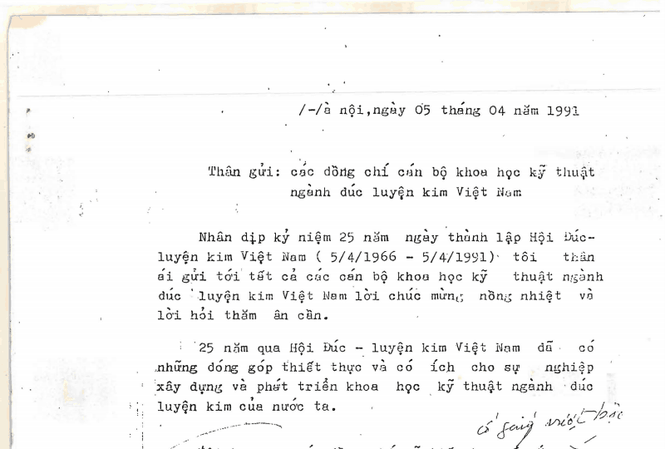 /-/à nội,ngày 05 tháng 04 năm 1991
Thân gửi: các đồng chí cán bộ khoa học kỹ thuật
ngành đúc luyện kim Việt Nam
Nhân dịp kỷ niệm 25 năm ngày thành lập Hội Đúc-
luyện kim Việt Nam ( 5/4/1966 - 5/4/1991) tôi thân
ái gửi tới tất cả các cán bộ khoa học kỹ thuật ngành
đúc luyện kim Việt Nam lời chúc mừng nồng nhiệt và
lời hỏi thăm ân cần.
25 năm qua Hội Đúc - luyện kim Việt Nam đã có
những đóng góp thiết thực và có ích cho sự nghiệp
xây dựng và phát triển khoa học kỹ thuật ngành đúc
luyện kim của nước ta.
cố gắng vượt bậc